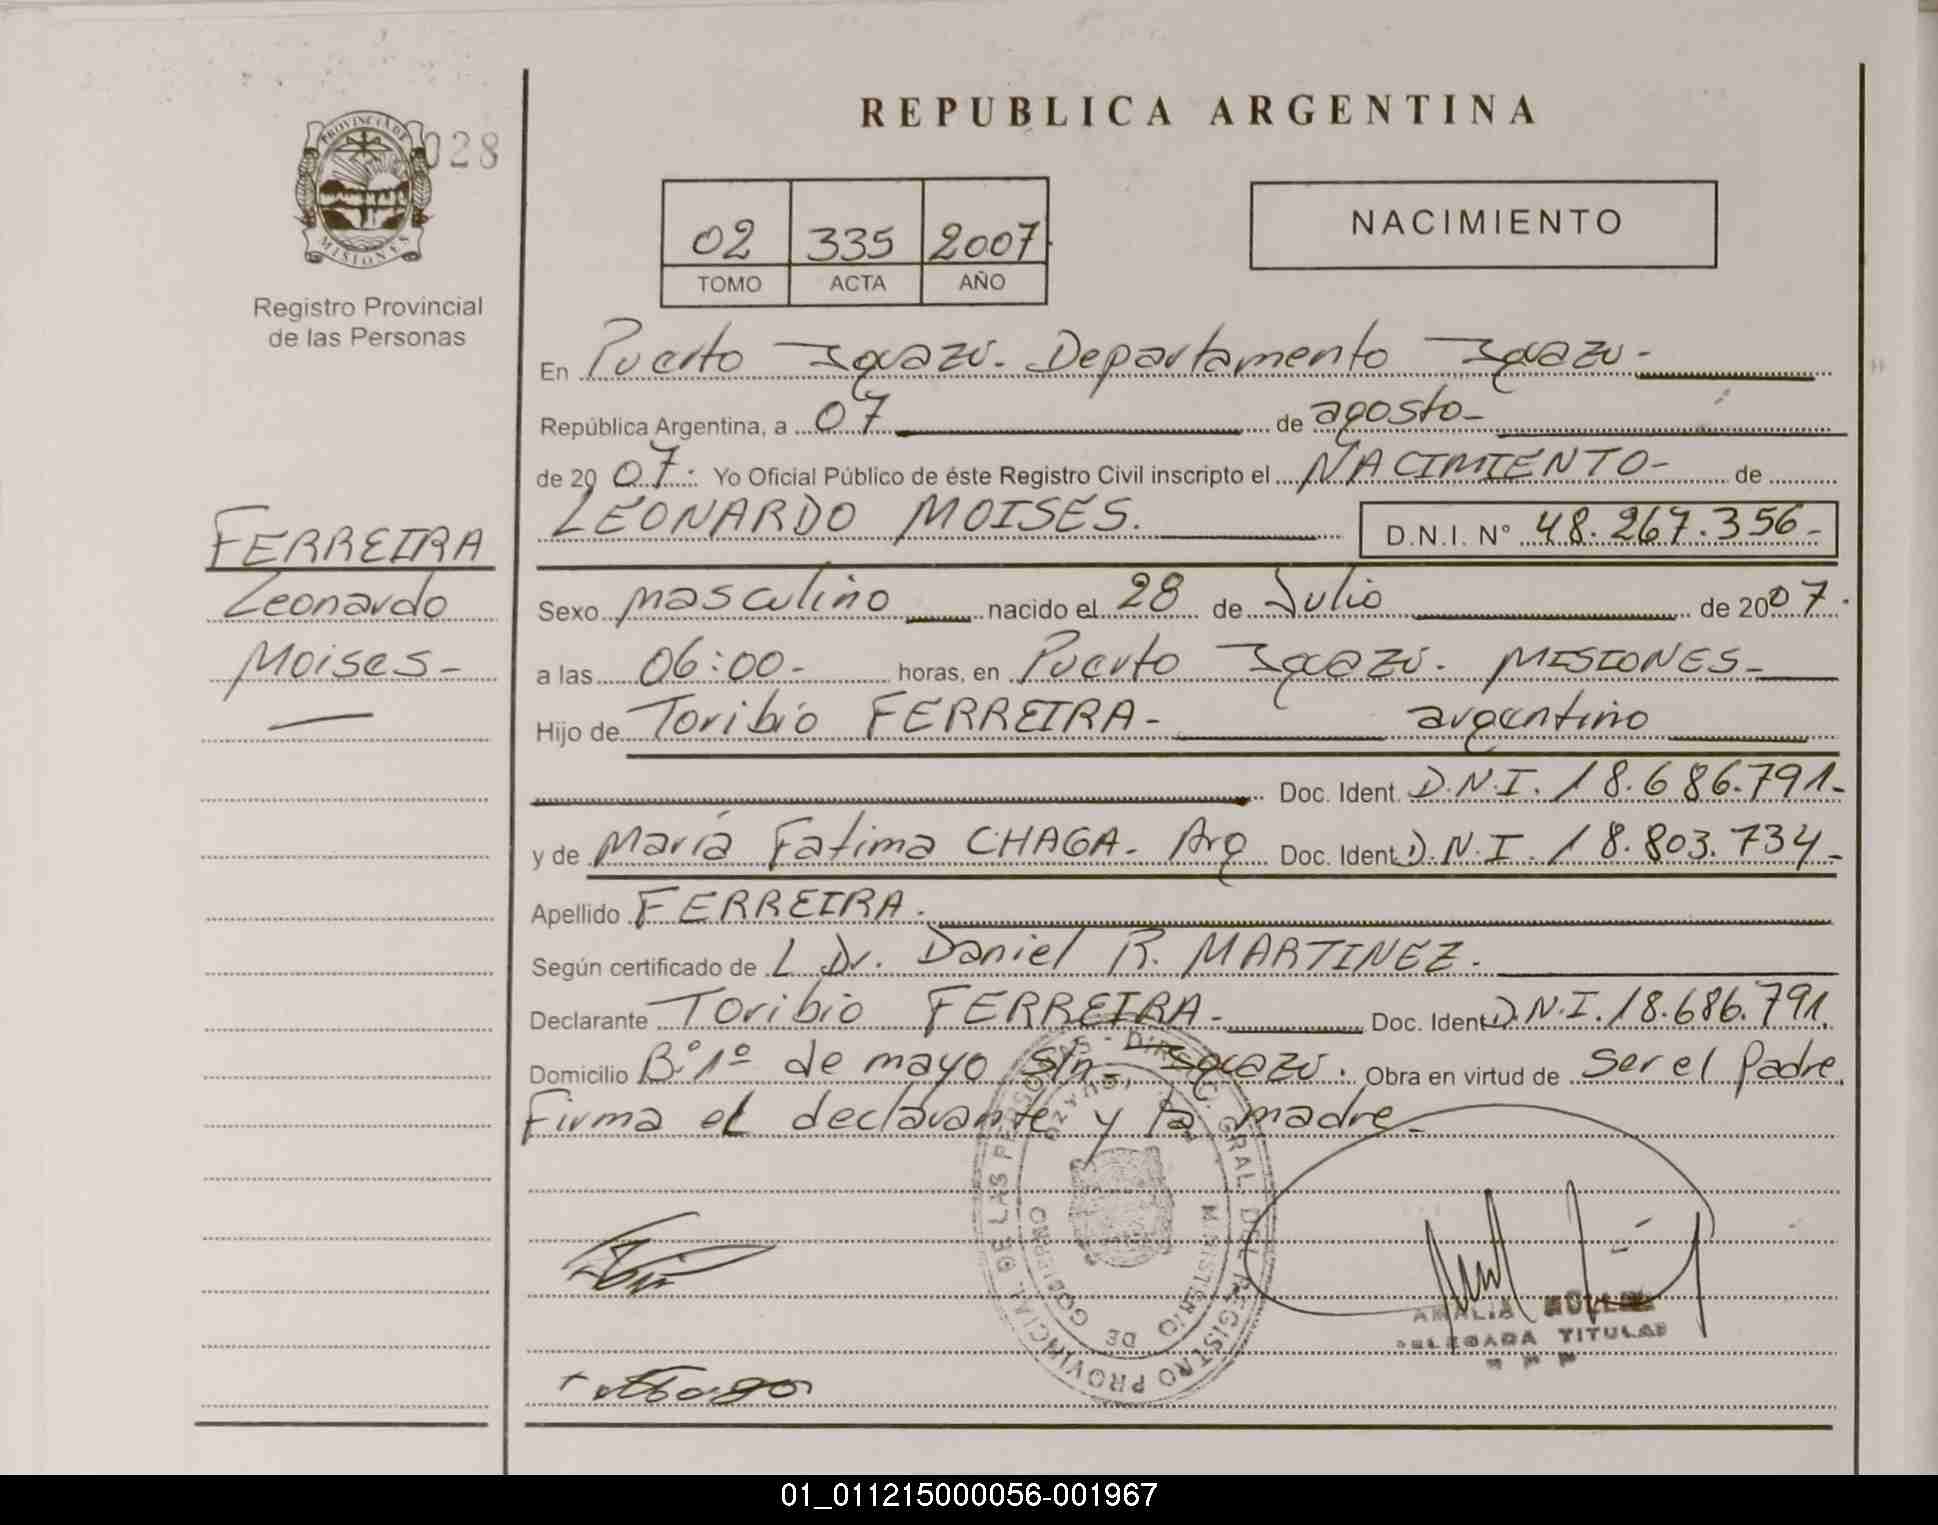 REPUBLICA ARGENTINA
PROVINCIA DE
MISIONES
028
Registro Provincial
de las Personas
02 335 2007
TOMO ACTA AÑO
NACIMIENTO
En Puerto Iguazú. Departamento Iguazú-
República Argentina, a 07 de agosto-
de 2007. Yo Oficial Público de éste Registro Civil inscripto el NACIMIENTO- de
LEONARDO MOISES. D.N.I. N° 48.267.356-
FERREIRA
Leonardo
Moises-
Sexo masculino nacido el 28 de Julio de 2007.
a las 06:00- horas, en Puerto Iguazú. MISIONES-
Hijo de Toribio FERREIRA- argentino
Doc. Ident. D.N.I. 18.686.791-
y de María Fatima CHAGA- Arg Doc. Ident. D.N.I. 18.803.734-
Apellido FERREIRA.
Según certificado de L Dr. Daniel R. MARTINEZ.
Declarante Toribio FERREIRA- Doc. Ident. D.N.I. 18.686.791.
Domicilio B° 1° de mayo s/n- Iguazú. Obra en virtud de Ser el Padre
Firma el declarante y la madre-
DIREC. GRAL. DEL REGISTRO PROVINCIAL DE LAS PERSONAS
MINISTERIO DE GOBIERNO
IGUAZU
AMALIA
DELEGADA TITULAR
01_011215000056-001967